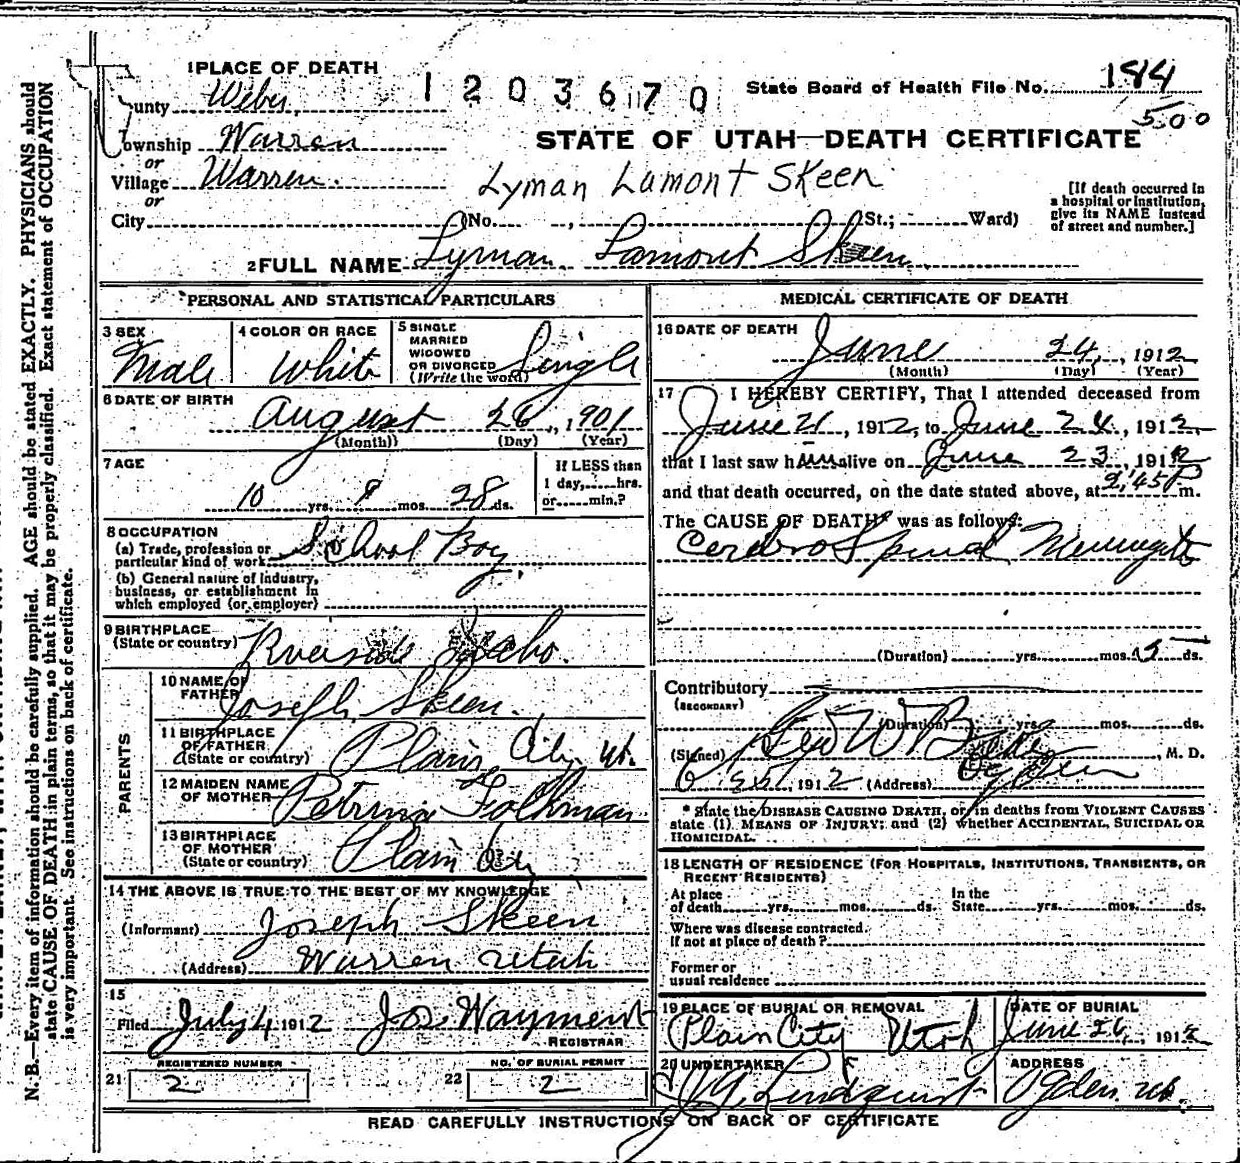 1 PLACE OF DEATH
1203670
State Board of Health File No. 184
500
County Weber
Township Warren
or
Village Warren.
or
City (No. , St.; Ward)
STATE OF UTAH—DEATH CERTIFICATE
Lyman Lamont Skeen
[If death occurred in
a hospital or institution,
give its NAME instead
of street and number.]
2 FULL NAME Lyman Lamont Skeen
PERSONAL AND STATISTICAL PARTICULARS
3 SEX
Male
4 COLOR OR RACE
White
5 SINGLE
MARRIED
WIDOWED
OR DIVORCED
(Write the word)
Single
6 DATE OF BIRTH
August 26, 1901
(Month) (Day) (Year)
7 AGE
10 yrs. 9 mos. 28 ds.
If LESS than
1 day, hrs.
or min.?
8 OCCUPATION
(a) Trade, profession or
particular kind of work School Boy
(b) General nature of industry,
business, or establishment in
which employed (or employer)
9 BIRTHPLACE
(State or country) Riverside Idaho.
PARENTS
10 NAME OF
FATHER Joseph Skeen.
11 BIRTHPLACE
OF FATHER
(State or country) Plain City Ut.
12 MAIDEN NAME
OF MOTHER Petrina Folkman
13 BIRTHPLACE
OF MOTHER
(State or country) Plain City
14 THE ABOVE IS TRUE TO THE BEST OF MY KNOWLEDGE
(Informant) Joseph Skeen
(Address) Warren Utah
15
Filed July 4 1912 Jos Wayment
REGISTRAR
REGISTERED NUMBER
21 2
NO. OF BURIAL PERMIT
22 2
MEDICAL CERTIFICATE OF DEATH
16 DATE OF DEATH
June 24, 1912
(Month) (Day) (Year)
17 I HEREBY CERTIFY, That I attended deceased from
June 21, 1912, to June 24, 1912,
that I last saw him alive on June 23, 1912
and that death occurred, on the date stated above, at 2:45 P m.
The CAUSE OF DEATH* was as follows:
Cerebro Spinal Meningitis
(Duration) yrs. mos. 5 ds.
Contributory
(SECONDARY)
(Duration) yrs. mos. ds.
(Signed) Geo W , M. D.
1912 (Address) Ogden
* State the DISEASE CAUSING DEATH, or, in deaths from VIOLENT CAUSES
state (1) MEANS OF INJURY; and (2) whether ACCIDENTAL, SUICIDAL OR
HOMICIDAL.
18 LENGTH OF RESIDENCE (FOR HOSPITALS, INSTITUTIONS, TRANSIENTS, OR
RECENT RESIDENTS)
At place
of death yrs. mos. ds.
In the
State yrs. mos. ds.
Where was disease contracted.
If not at place of death?
Former or
usual residence
19 PLACE OF BURIAL OR REMOVAL
Plain City Utah
DATE OF BURIAL
June 26, 1912
20 UNDERTAKER
Lindquist
ADDRESS
Ogden Ut.
READ CAREFULLY INSTRUCTIONS ON BACK OF CERTIFICATE
N. B.—Every item of information should be carefully supplied. AGE should be stated EXACTLY. PHYSICIANS should
state CAUSE OF DEATH in plain terms, so that it may be properly classified. Exact statement of OCCUPATION
is very important. See instructions on back of certificate.